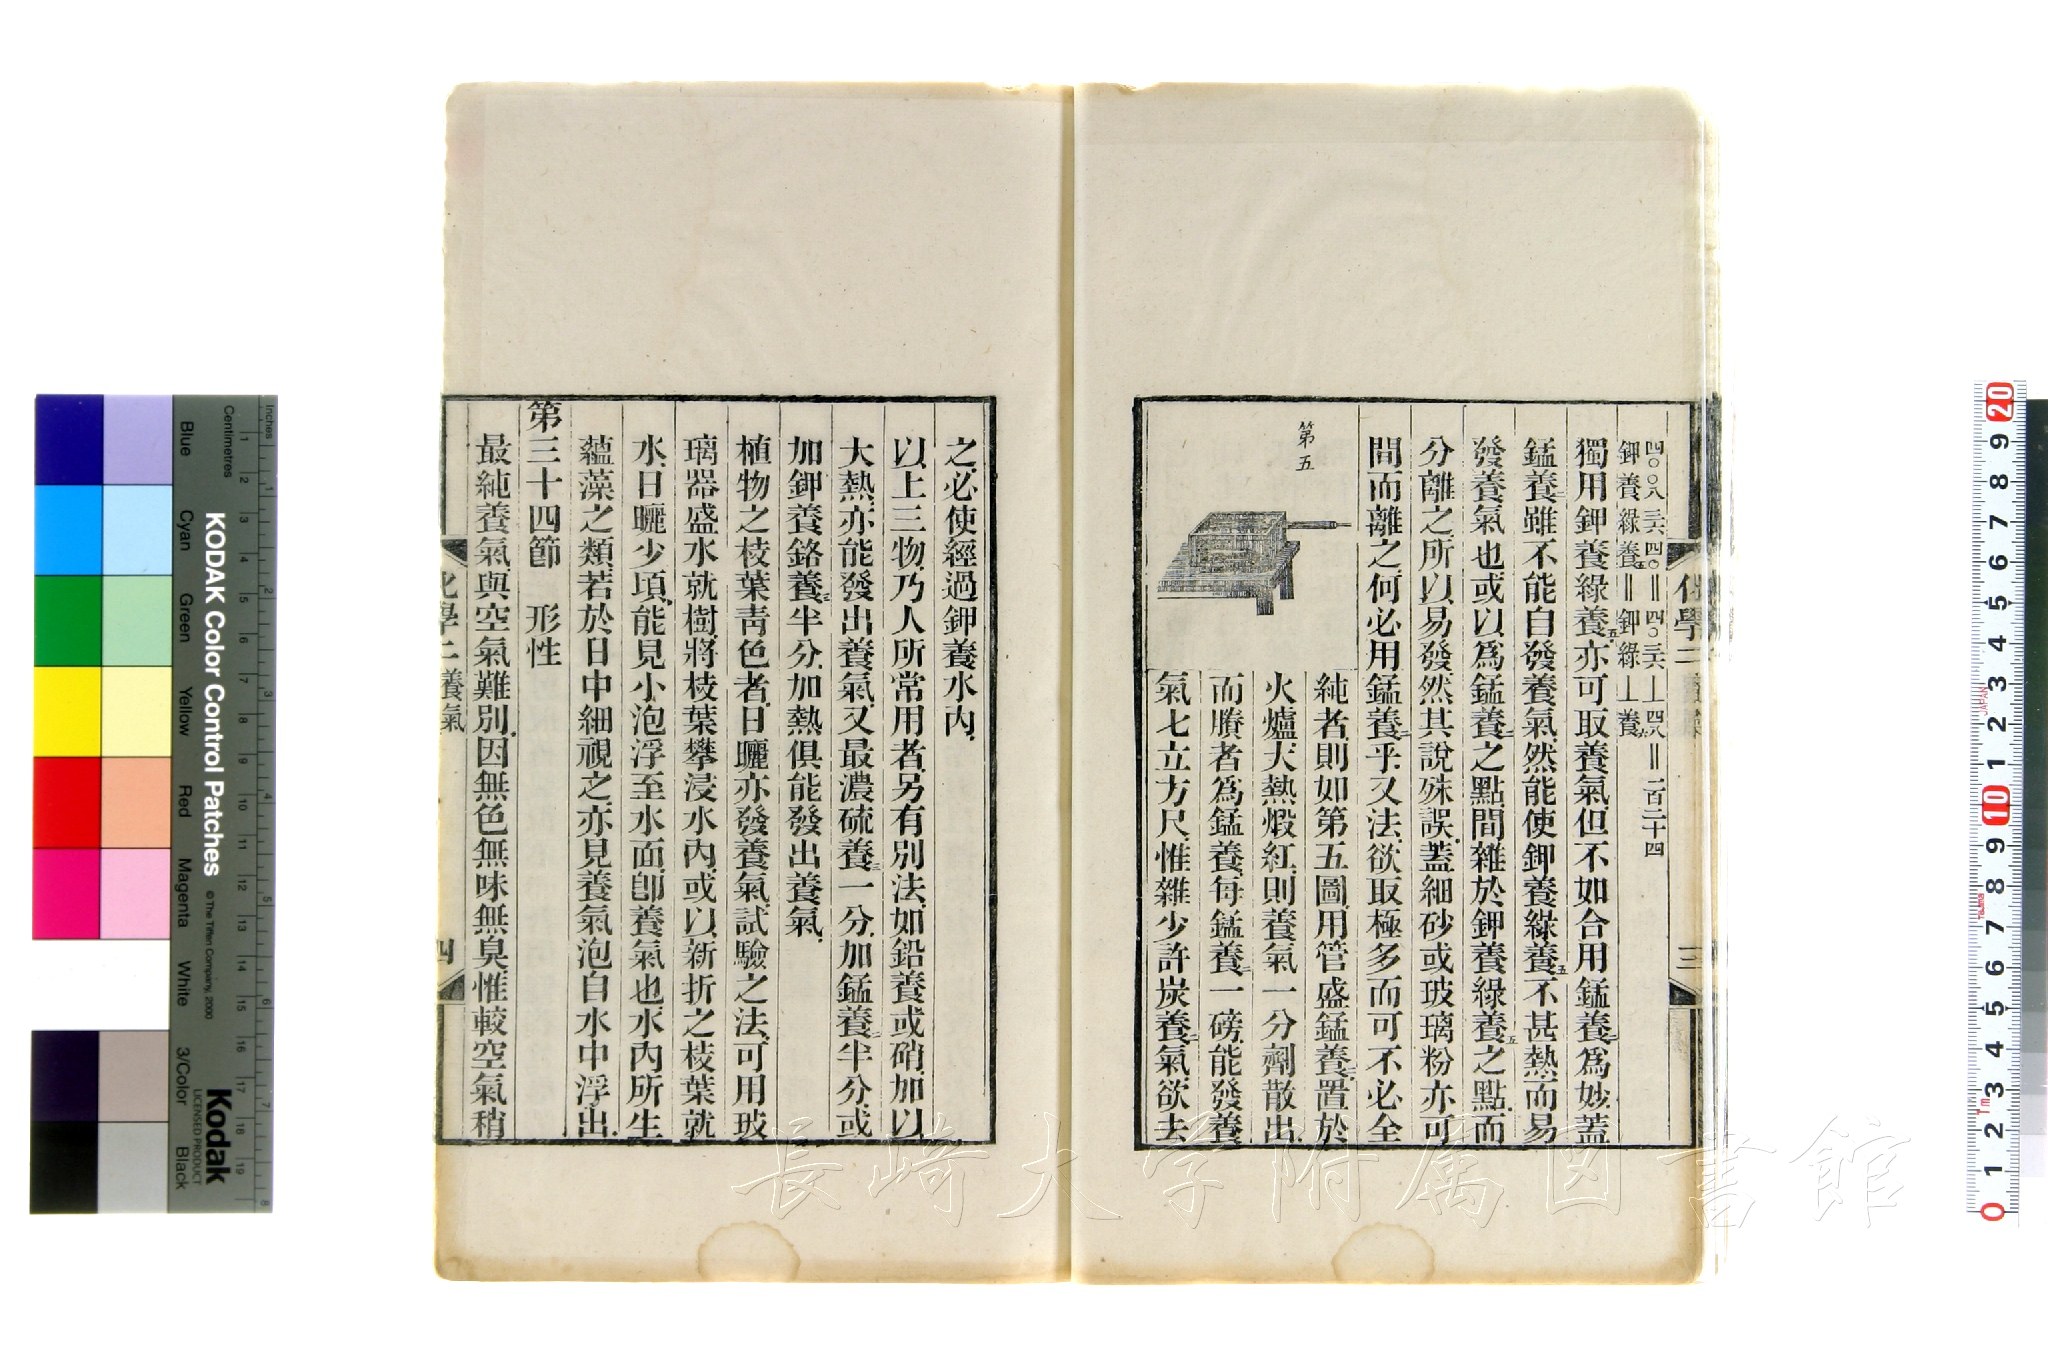 四〇〇八三六四〇‖四〇三六⊥四八‖一百二十四
鉀養綠養五‖鉀綠⊥養六
獨用鉀養綠養五亦可取養氣但不如合用錳養二爲妙蓋
錳養二雖不能自發養氣然能使鉀養綠養五不甚熱而易
發養氣也或以爲錳養二之點間雜於鉀養綠養五之點而
分離之所以易發然其說殊誤蓋細砂或玻璃粉亦可
間而離之何必用錳養二乎又法欲取極多而可不必全
第五
純者則如第五圖用管盛錳養二置於
火爐大熱煅紅則養氣一分劑散出
而賸者爲錳養每錳養二一磅能發養
氣七立方尺惟雜少許炭養二氣欲去
化學二 養氣
三
之必使經過鉀養水內
以上三物乃人所常用者另有別法如鉛養或硝加以
大熱亦能發出養氣又最濃硫養三一分加錳養二半分或
加鉀養鉻養三半分加熱俱能發出養氣
植物之枝葉靑色者日曬亦發養氣試驗之法可用玻
璃器盛水就樹將枝葉攀浸水內或以新折之枝葉就
水日曬少頃能見小泡浮至水面卽養氣也水內所生
蘊藻之類若於日中細視之亦見養氣泡自水中浮出
第三十四節 形性
最純養氣與空氣難別因無色無味無臭惟較空氣稍
化學二 養氣
四
長崎大学附属図書館
KODAK Color Control Patches
© The Tiffen Company, 2000
Kodak
LICENSED PRODUCT
Inches
Centimetres
Blue
Cyan
Green
Yellow
Red
Magenta
White
3/Color
Black
1 2 3 4 5 6 7 8
1 2 3 4 5 6 7 8 9 10 11 12 13 14 15 16 17 18 19
0 1 2 3 4 5 6 7 8 9 10 1 2 3 4 5 6 7 8 9 20
JAPAN
1m